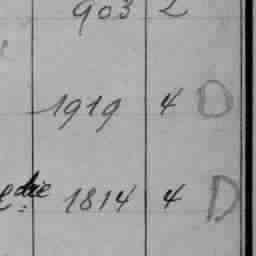 903 2
1919 4 D
1814 4 D